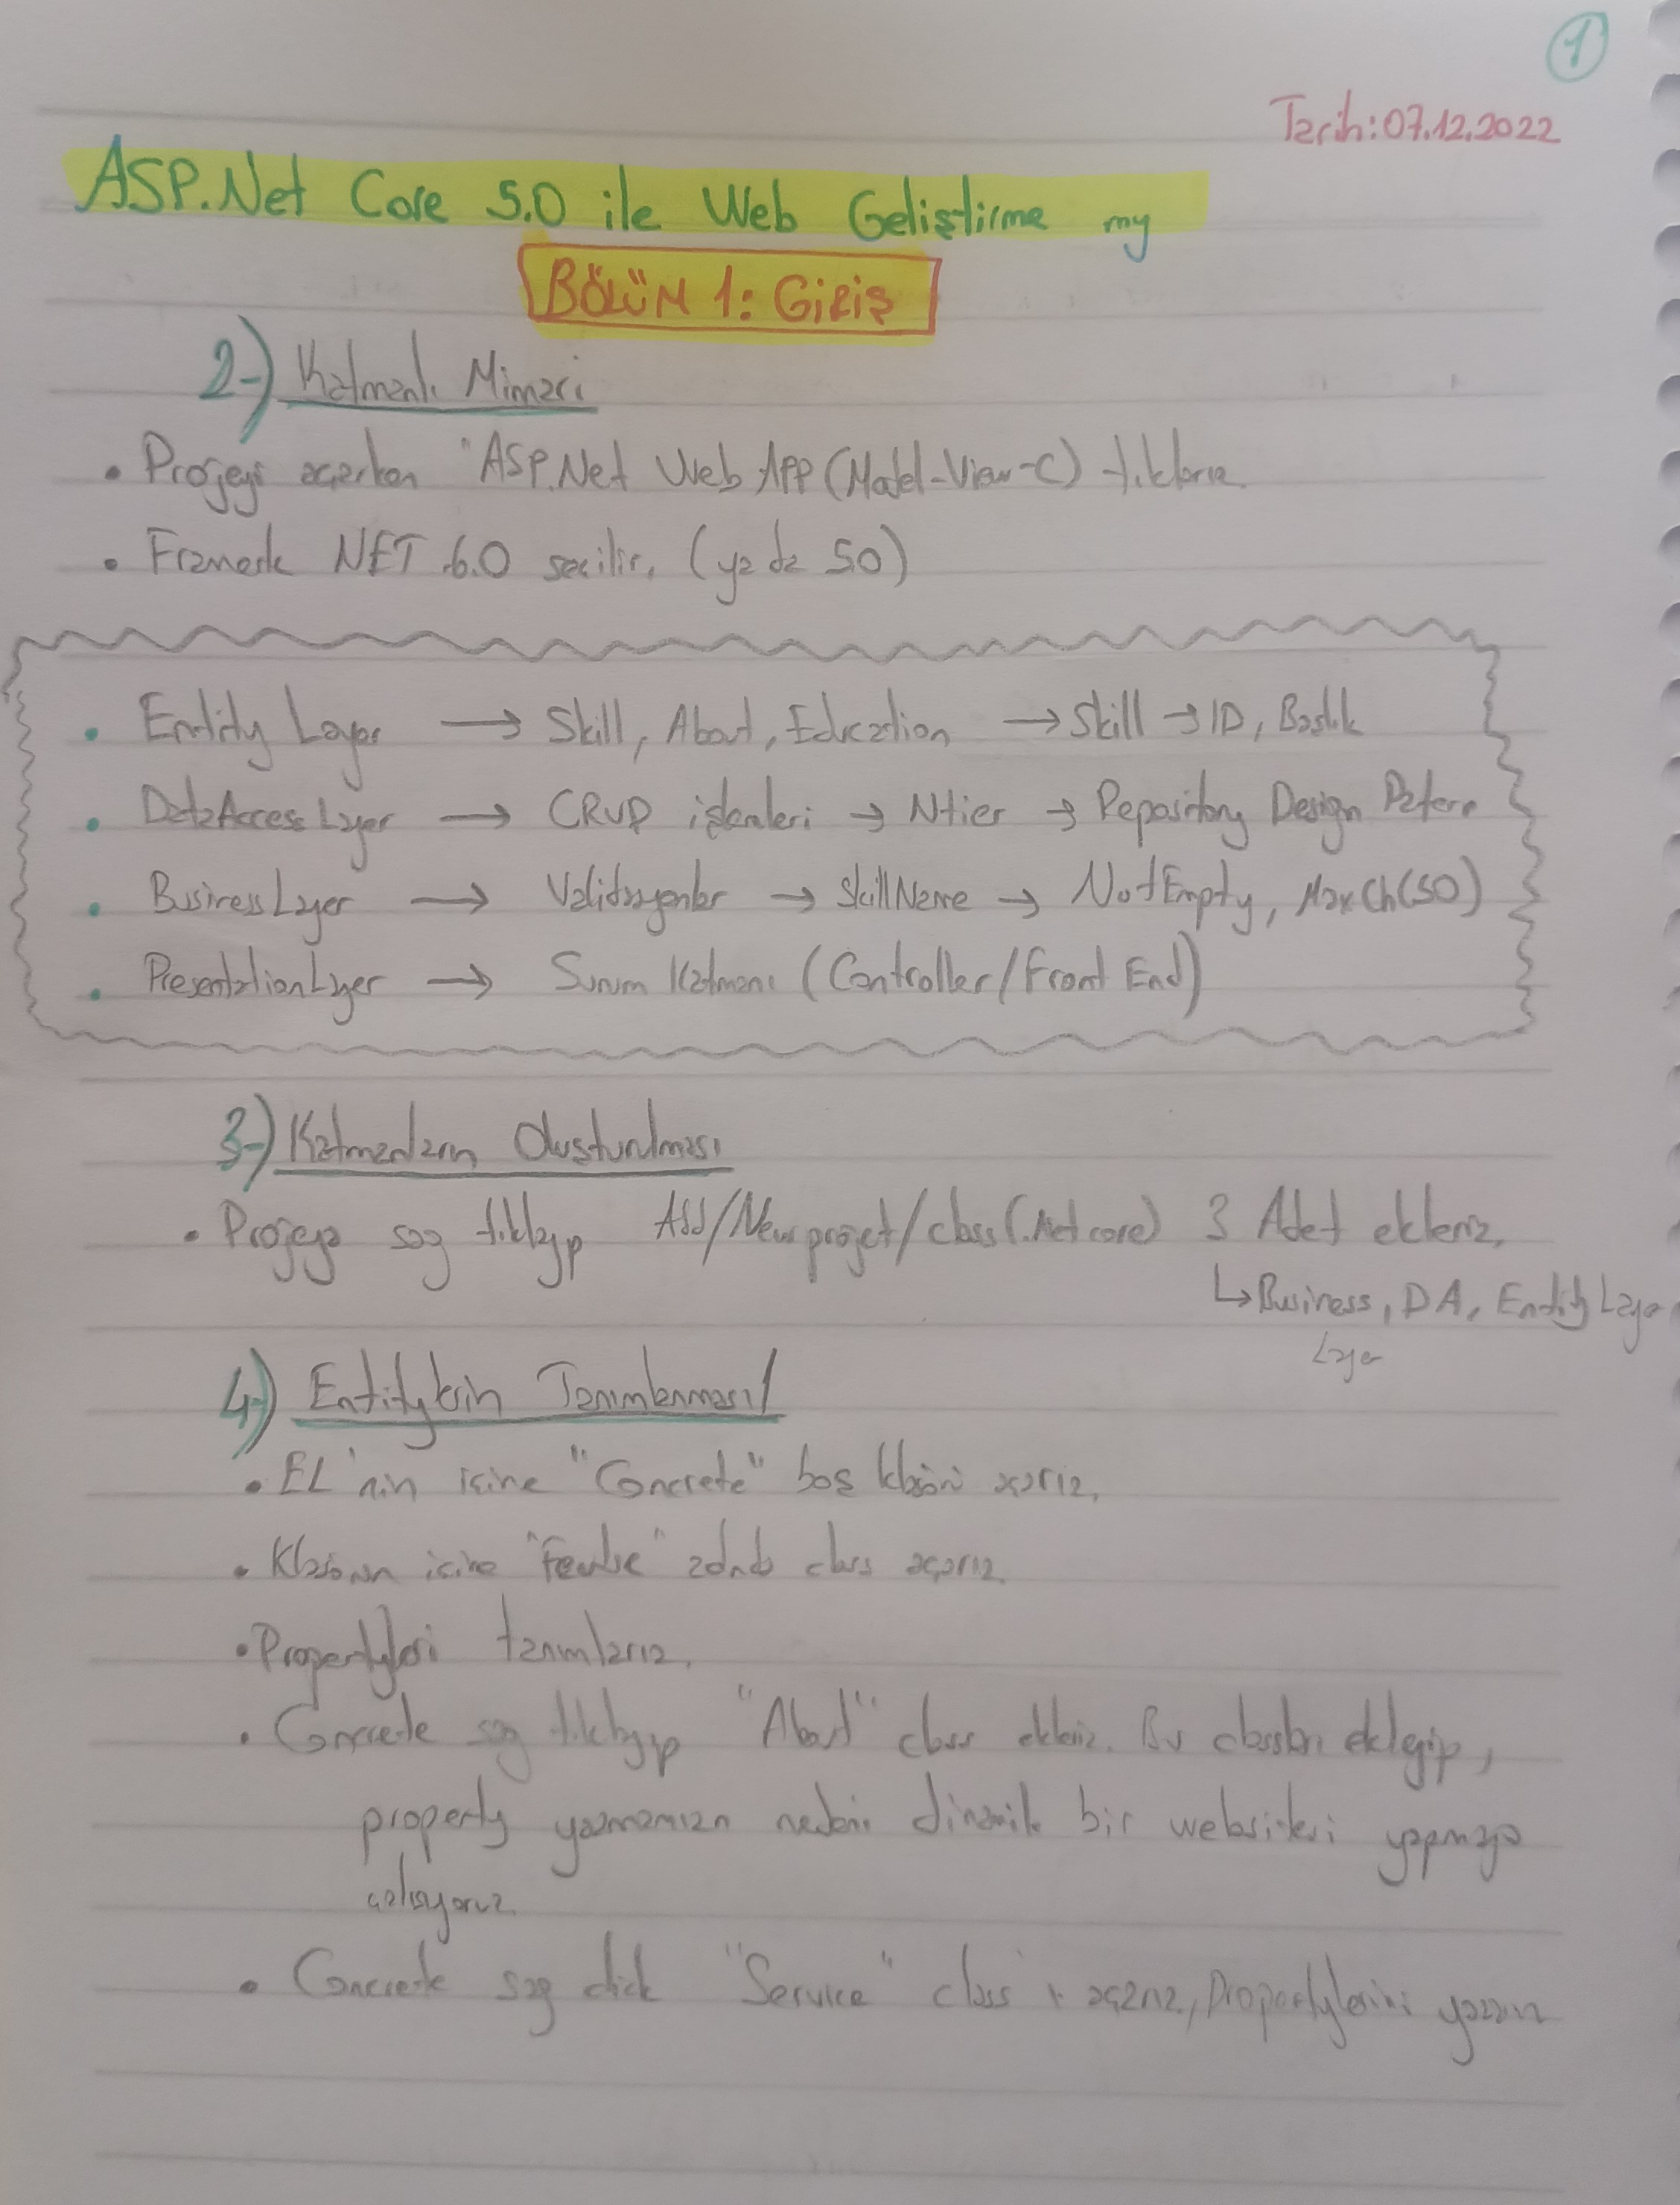 1
Tarih: 07.12.2022
ASP.Net Core 5.0 ile Web Geliştirme my
BÖLÜM 1: GİRİŞ
2-) Katmanlı Mimari
• Projeyi açarken "ASP.Net Web APP (Model-View-C) tıklarız.
• Framework NET 6.0 seçilir. (ya da 5.0)
• Entity Layer → Skill, About, Education → Skill → ID, Başlık
• DataAccess Layer → CRUD işlemleri → Ntier → Repository Design Patern
• Business Layer → Validasyonlar → SkillName → NotEmpty, MaxCh(50)
• Presentation Layer → Sunum Katmanı (Controller/Front End)
3-) Katmanların Oluşturulması
• Projeye sağ tıklayıp Add/New project/class(.Net core) 3 Adet ekleriz.
↳ Business, DA, Entity Layer
Layer
4-) Entitylerin Tanımlanması
• EL'nin içine "Concrete" boş klasörü açarız.
• Klasörün içine "Feature" adında class açarız.
• Propertyleri tanımlarız.
• Concrete sağ tıklayıp "About" class ekleriz. Bu classları ekleyip,
property yazmamızın nedeni dinamik bir websitesi yapmaya
çalışıyoruz.
• Concrete sağ click "Service" class ı açarız, Propertylerini yazarız